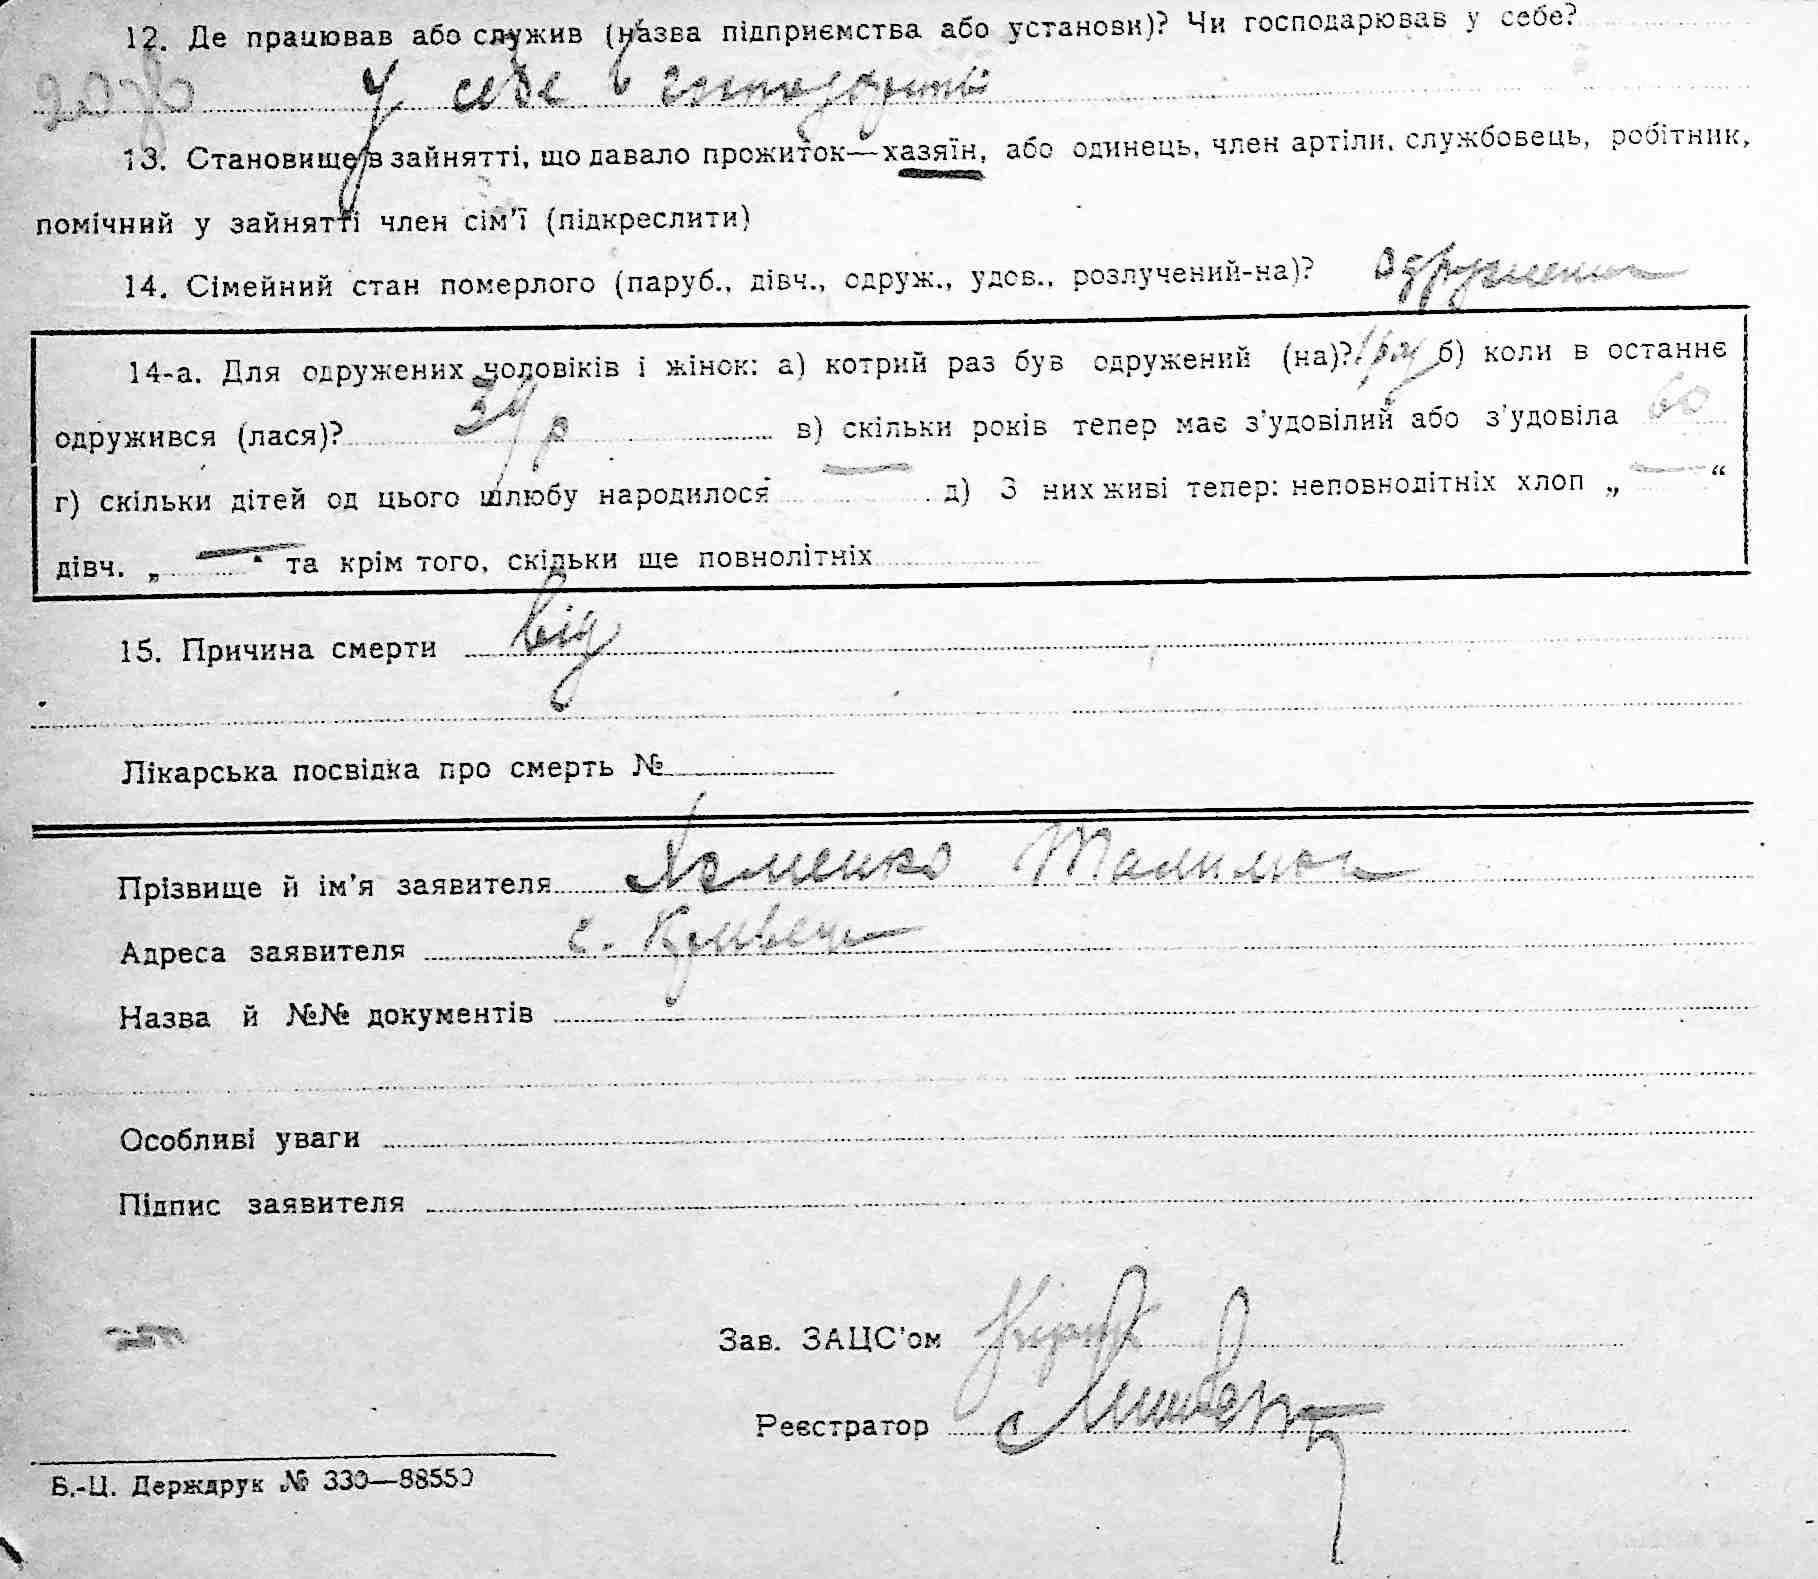 12. Де працював або служив (назва підприємства або установи)? Чи господарював у себе?
У себе в господарстві
13. Становище в зайнятті, що давало прожиток—хазяїн, або одинець, член артіли, службовець, робітник,
помічний у зайнятті член сім'ї (підкреслити)
14. Сімейний стан померлого (паруб., дівч., одруж., удов., розлучений-на)? одружений
14-а. Для одружених чоловіків і жінок: а) котрий раз був одружений (на)? 1 раз б) коли в останнє
одружився (лася)? р в) скільки років тепер має з'удовілий або з'удовіла 60
г) скільки дітей од цього шлюбу народилося — д) З них живі тепер: неповнолітніх хлоп „ — “
дівч. „ — “ та крім того, скільки ще повнолітніх
15. Причина смерти від
Лікарська посвідка про смерть №
Прізвище й ім'я заявителя
Адреса заявителя с.
Назва й №№ документів
Особливі уваги
Підпис заявителя
Зав. ЗАЦС'ом
Реєстратор
Б.-Ц. Держдрук № 330—88550